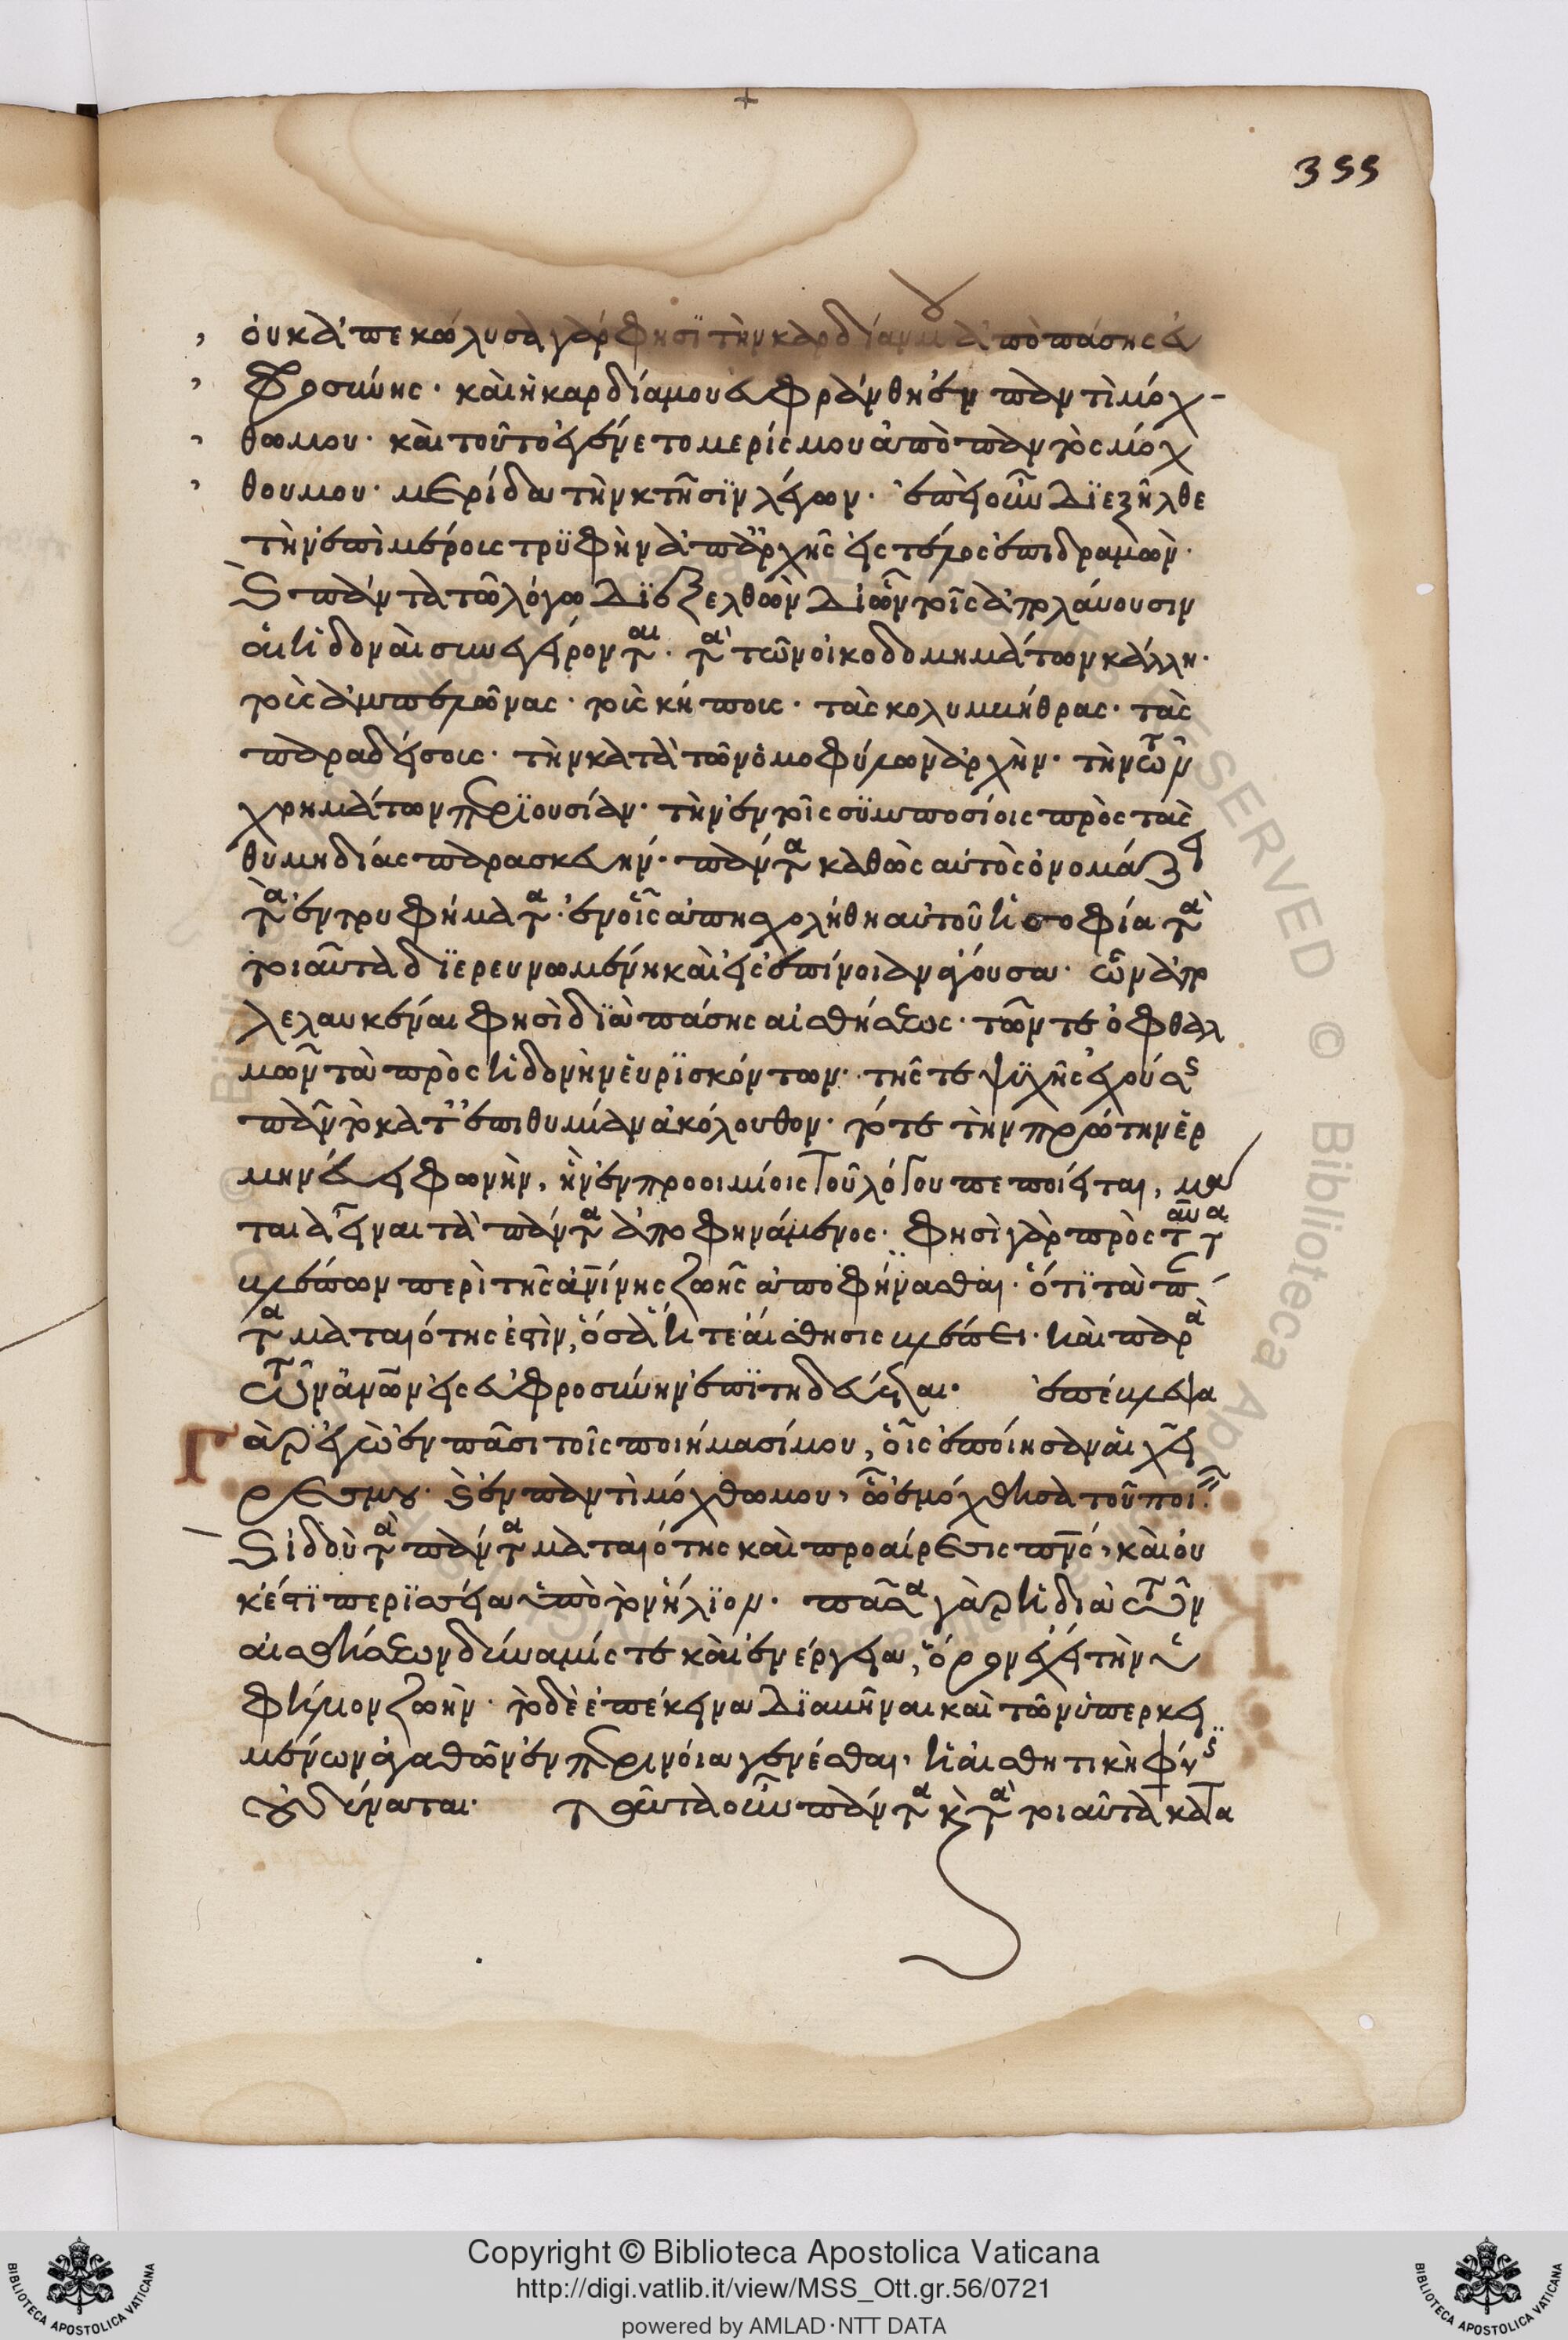 355
οὐκ ἀπεκώλυσα γάρ φησϊ τὴν καρδίαν μου ἀπὸ πάσης εὐ
φροσύνης· καὶ ἡ καρδία μου εὐφράνθη ἐν παντὶ μόχ-
θω μου· καὶ τοῦτο ἐγένετο μερίς μου ἀπὸ παντὸς μόχ
θου μου· μερίδα τὴν κτῆσϊν λέγων· ἐπεὶ οὖν διεξῆλθε
τὴν ἐπὶ μέροις τρϋφὴν ἀπ' ἀρχῆς εἰς τέλος ἐπιδραμὼν·
καὶ πάντα τῶ λόγω διεξελθὼν δι ὧν τοῖς ἀπολάυουσιν
αἱ ἡδοναὶ συνείρονται· τὰ τῶν οἰκοδομημάτων κάλλη·
τοὺς ἀμπελῶνας· τοὺς κήποις· τὰς κολυμβήθρας· τὰς
παραδείσοις· τὴν κατὰ τῶν ὁμοφύλων ἀρχὴν· τὴν τῶν
χρημάτων περϊουσίαν· τὴν ἐν τοῖς σϋμποσίοις πρὸς τὰς
θϋμηδίας παρασκευήν· πάντα καθὼς αὐτὸς ὀνομάζει
τὰ ἐντρυφήματα· ἐν οἷς ἀπησχολήθη αὐτοῦ ἡ σοφία τὰ
τοιαῦτα δϊερευνωμένη καὶ εἰς ἐπίνοιαν ἄγουσα· ὧν ἀπο
λελαυκέναι φησὶ δϊὰ πάσης αἰσθήσεως· τῶν τε ὀφθαλ
μῶν τὰ πρὸς ἡδονὴν εὑρϊσκόντων· τῆς τε ψϋχῆς ἐχούσης
πᾶν τὸ κατ' ἐπιθυμίαν ἀκόλουθον· τότε τὴν πρώτην ἑρ
μηνεύει φωνὴν, ἣν ἐν προοιμίοις τοῦ λόγου πεποίηται, μα
ταια εἶναι τὰ πάντα ἀποφηνάμενος· φησὶ γὰρ πρὸς ταῦτα
βλέπων περὶ τῆς ἀνίνης ζωῆς ἀποφήνασθαι· ὅτϊ τὰ πάν
τα ματαιότης ἐστὶν, ὅσα ἥ τε αἴσθησις βλέπει· καὶ παρὰ
τῶν ἀνων εἰς εὐφροσύνην ἐπϊτηδεύεται· ἐπέβλεψα
Γὰρ ἐγὼ ἐν πᾶσι τοῖς ποιήμασί μου, οἷς ἐποίησαν αἱ χεῖ
ρές μου· καὶ ἐν παντὶ μόχθω μου, ὧ ἐμόχθησα τοῦ ποιεῖν·
καὶ ἰδοὺ τὰ πάντα ματαιότης καὶ προαίρεσις πνς, καὶ οὐ
κ ἔστϊ περϊσσεία ὑπὸ τὸν ἥλϊον· πᾶσα γὰρ ἡ διὰ τῶν
αἰσθήσεων δύναμίς τε καὶ ἐνέργεια, ὅρον ἔχει τὴν ὑ
φήλιον ζωὴν· τὸ δὲ ἐπέκεινα διαβῆναι καὶ τῶν ὑπερκει
μένων ἀγαθῶν ἐν περινοία γενέσθαι, ἡ αἰσθητικὴ φύσις
οὐ δύναται· ταῦτα οὖν πάντα καὶ τὰ τοιαῦτα κατα
Copyright © Biblioteca Apostolica Vaticana
http://digi.vatlib.it/view/MSS_Ott.gr.56/0721
powered by AMLAD·NTT DATA
BIBLIOTECA APOSTOLICA VATICANA
BIBLIOTECA APOSTOLICA VATICANA